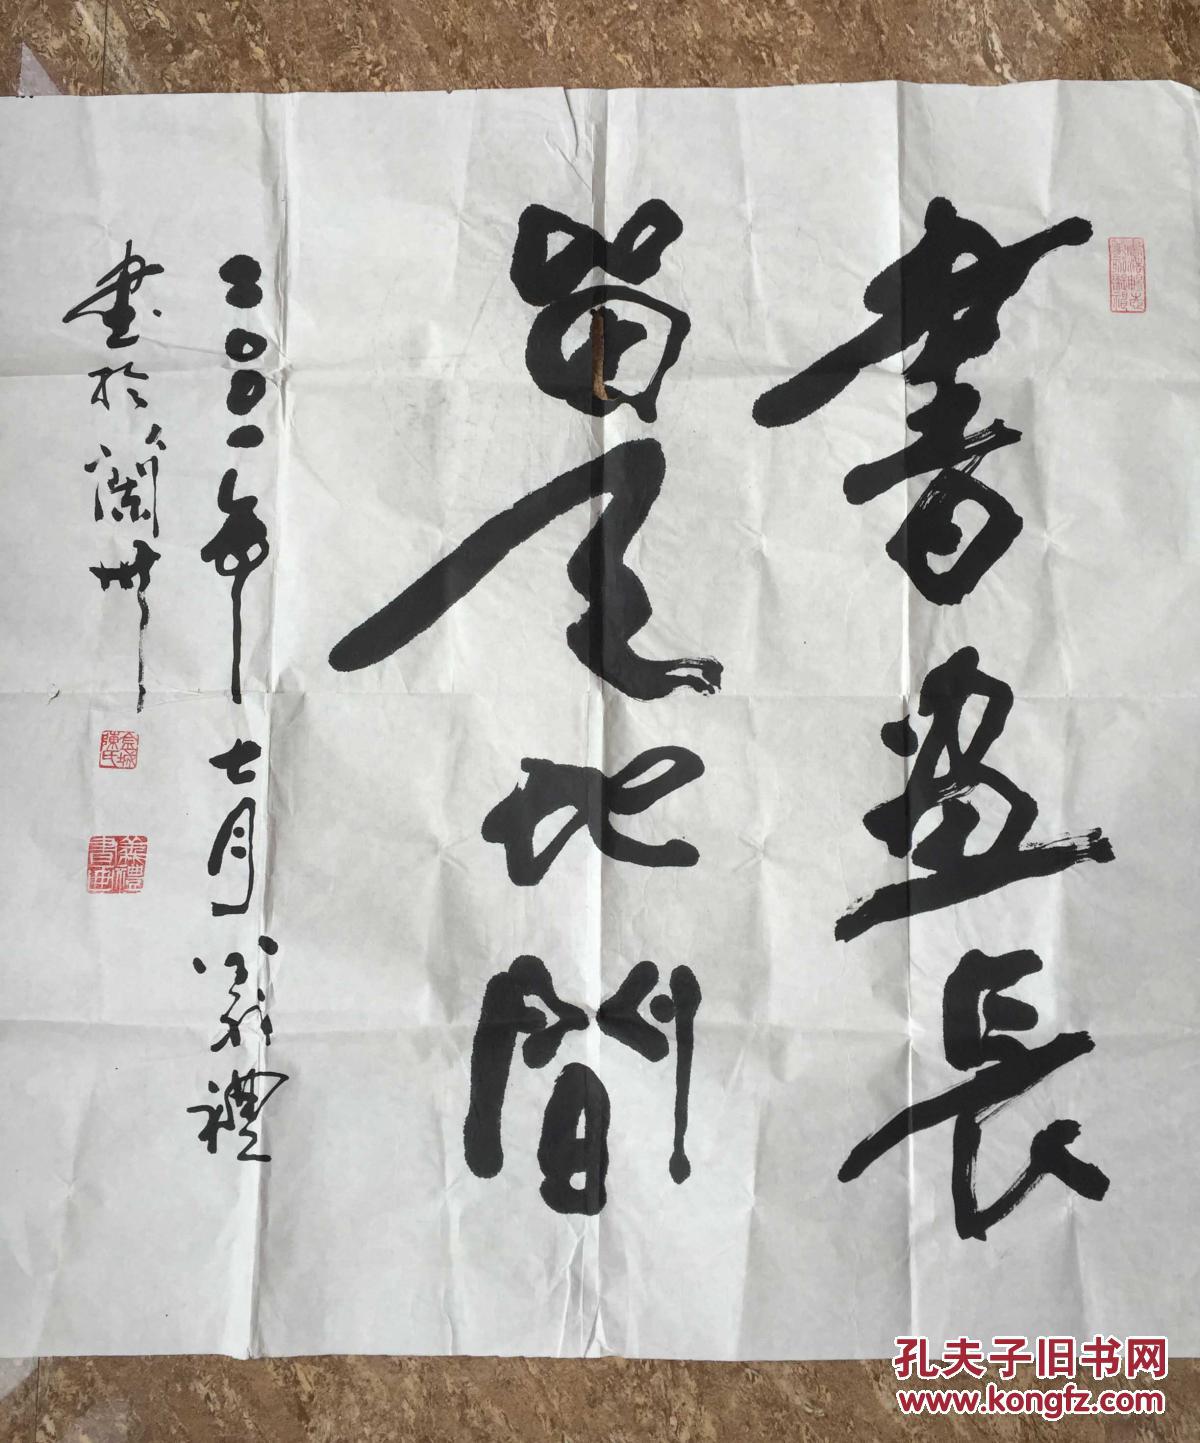 書画長
留天地間
二〇〇一年七月義禮
書於蘭州
金城陳氏
義禮書画
孔夫子旧书网
www.kongfz.com